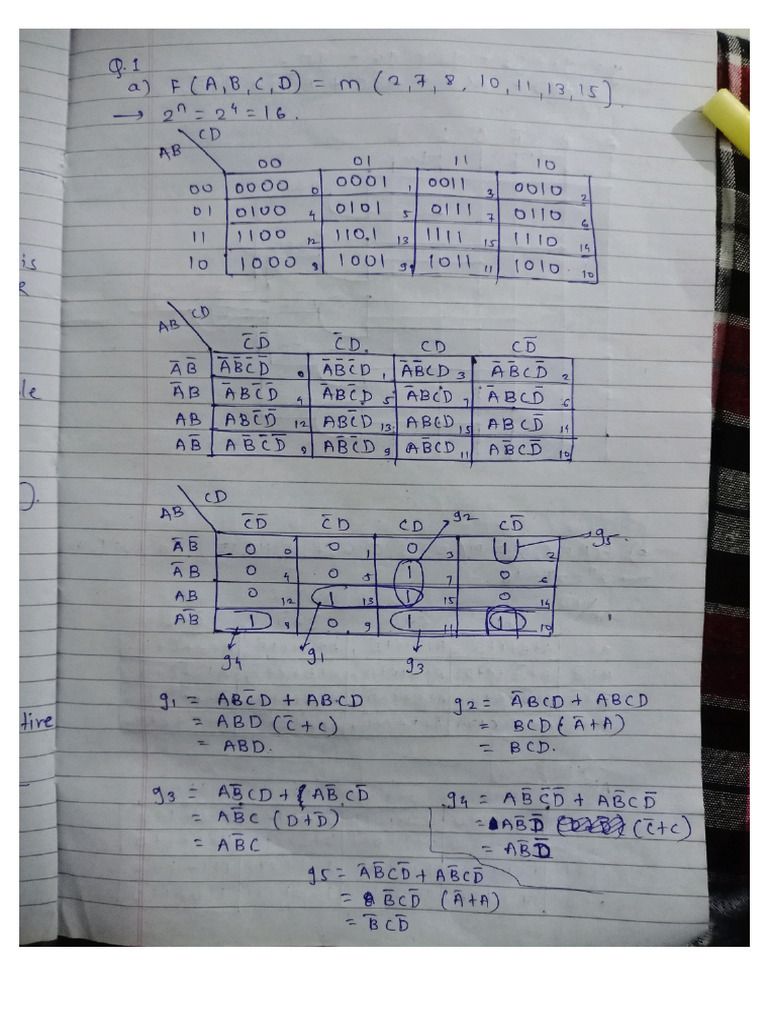 Q.1
a) F(A,B,C,D) = m (2,7,8, 10,11,13,15).
→ 2ⁿ = 2⁴ = 16.
CD
AB
00 01 11 10
00 0000 0 0001 1 0011 3 0010 2
01 0100 4 0101 5 0111 7 0110 6
11 1100 12 1101 13 1111 15 1110 14
10 1000 8 1001 9 1011 11 1010 10
is
CD
AB
C̅D̅ C̅D. CD CD̅
A̅B̅ A̅B̅C̅D̅ 0 A̅B̅C̅D 1 A̅B̅CD 3 A̅B̅CD̅ 2
A̅B A̅BC̅D̅ 4 A̅BC̅D 5 A̅BCD 7 A̅BCD̅ 6
AB ABC̅D̅ 12 ABC̅D 13 ABCD 15 ABCD̅ 14
AB̅ AB̅C̅D̅ 8 AB̅C̅D 9 AB̅CD 11 AB̅CD̅ 10
le
).
CD
AB
C̅D̅ C̅D CD g2 CD̅
A̅B̅ 0 0 0 1 0 3 1 2 g5.
A̅B 0 4 0 5 1 7 0 6
AB 0 12 1 13 1 15 0 14
AB̅ 1 8 0 9 1 11 1 10
g4 g1 g3
g1 = ABC̅D + ABCD g2 = A̅BCD + ABCD
= ABD (C̅+C) = BCD (A̅+A)
= ABD. = BCD.
tive
g3 = AB̅CD + AB̅CD̅ g4 = AB̅C̅D̅ + AB̅CD̅
= AB̅C (D+D̅) = AB̅D̅ (C̅+C)
= AB̅C = AB̅D̅
g5 = A̅B̅CD̅ + AB̅CD̅
= B̅CD̅ (A̅+A)
= B̅CD̅